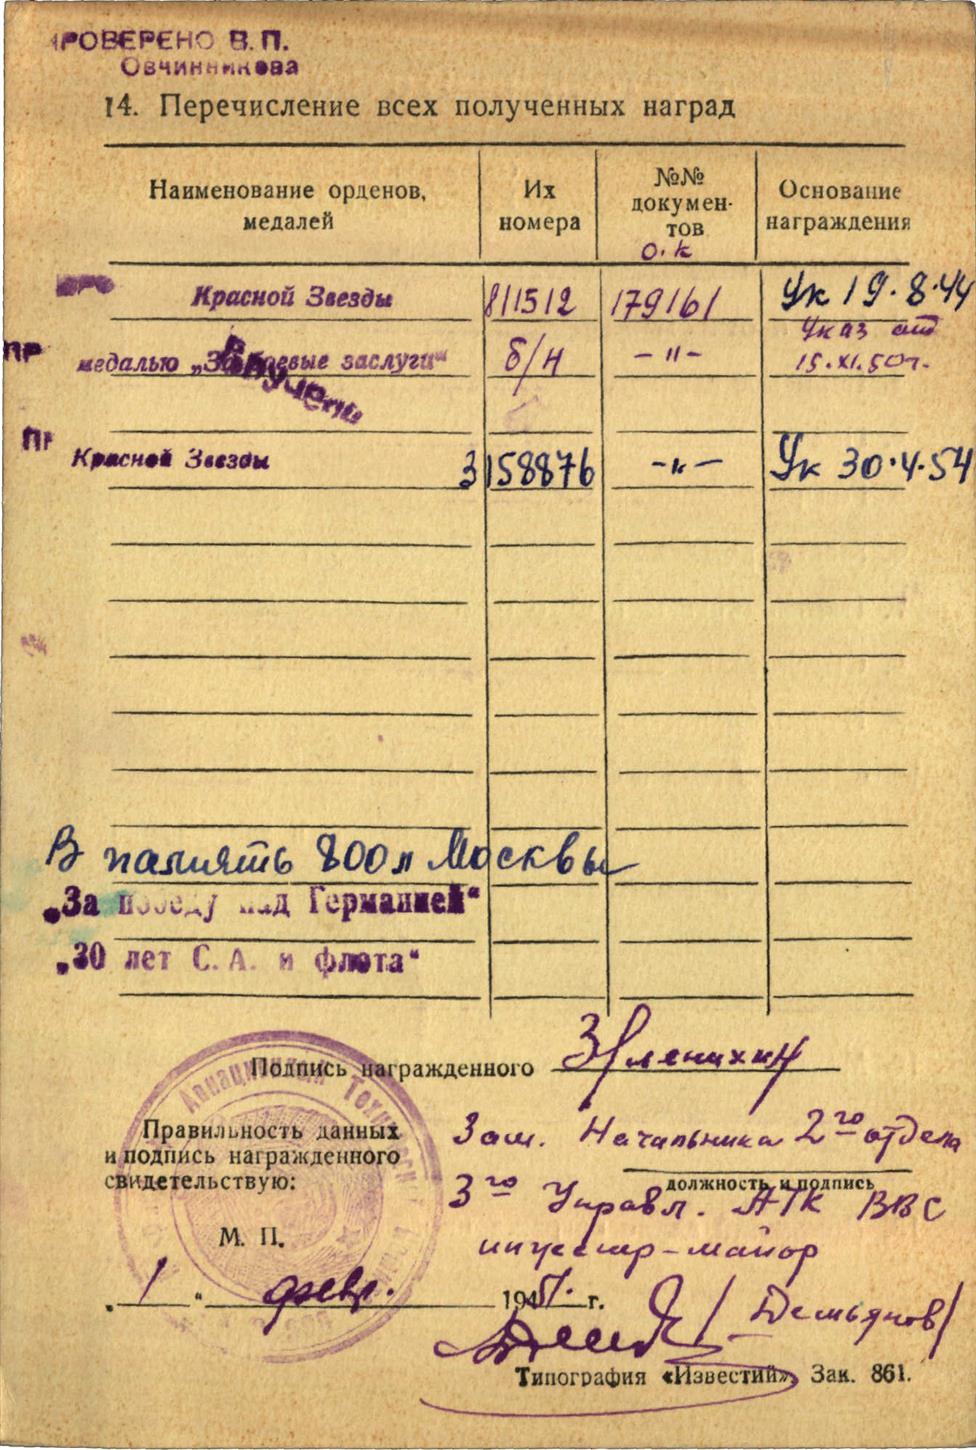 ПРОВЕРЕНО В. П.
Овчинникова
14. Перечисление всех полученных наград
Наименование орденов, медалей
Их номера
№№ документов
Основание награждения
О.К
Красной Звезды 811512 179161 Ук 19.8.44
ПР медалью „За боевые заслуги“ б/н —"— Указ от 15.XI.50г.
Вручены
ПР Красной Звезды 3158876 —"— Ук 30.4.54
В память 800л Москвы
„За победу над Германией“
„30 лет С. А. и флота“
Подпись награжденного
Правильность данных
и подпись награжденного
свидетельствую:
Зам. Начальника 2го отдела
должность и подпись
3го Управл. АТК ВВС
М. П.
инженер-майор
„ 1 “ февр. 1951. г.
/Демьянов/
Авиационный Технический
Типография «Известий». Зак. 861.